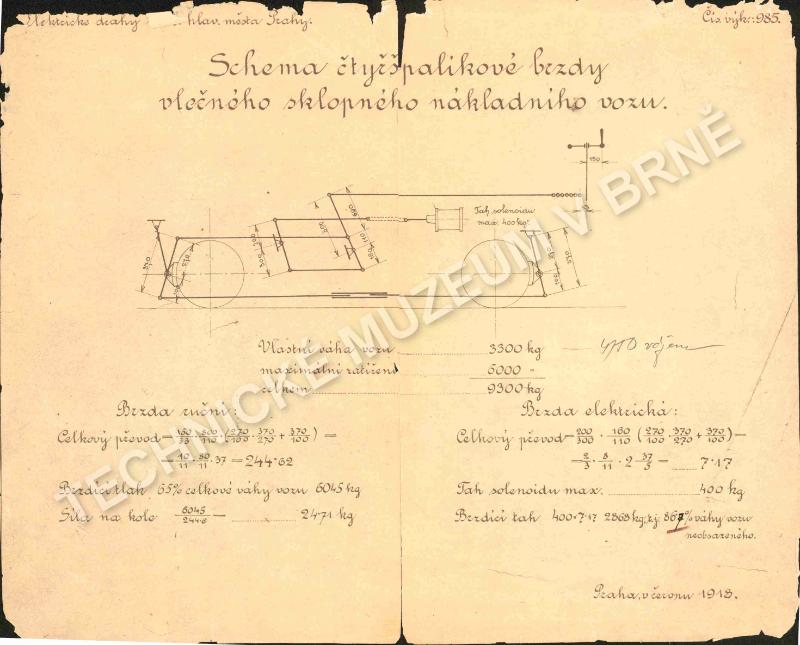 Elektrické dráhy hlav. města Prahy.
Čís. výkr.: 985.
Schema čtyřšpalíkové brzdy
vlečného sklopného nákladního vozu.
150
Tah solenoidu
max. 400 kg
Vlastní váha vozu 3300 kg
maximální zatížení 6000 "
celkem 9300 kg
Brzda ruční:
Celkový převod
= 244·62
Brzdící tlak 65% celkové váhy vozu 6045 kg
Síla na kole 6045/244·6 = 24·71 kg
Brzda elektrická:
Celkový převod = 200/300 · 160/110 (270/100 · 370/270 + 370/100) =
= 2/3 · 8/11 · 2 37/5 = 7·17
Tah solenoidu max. 400 kg
Brzdící tah 400·7·17 2868 kg, t.j. 867% váhy vozu
neobsazeného.
Praha, v červnu 1918.
TECHNICKÉ MUZEUM V BRNĚ